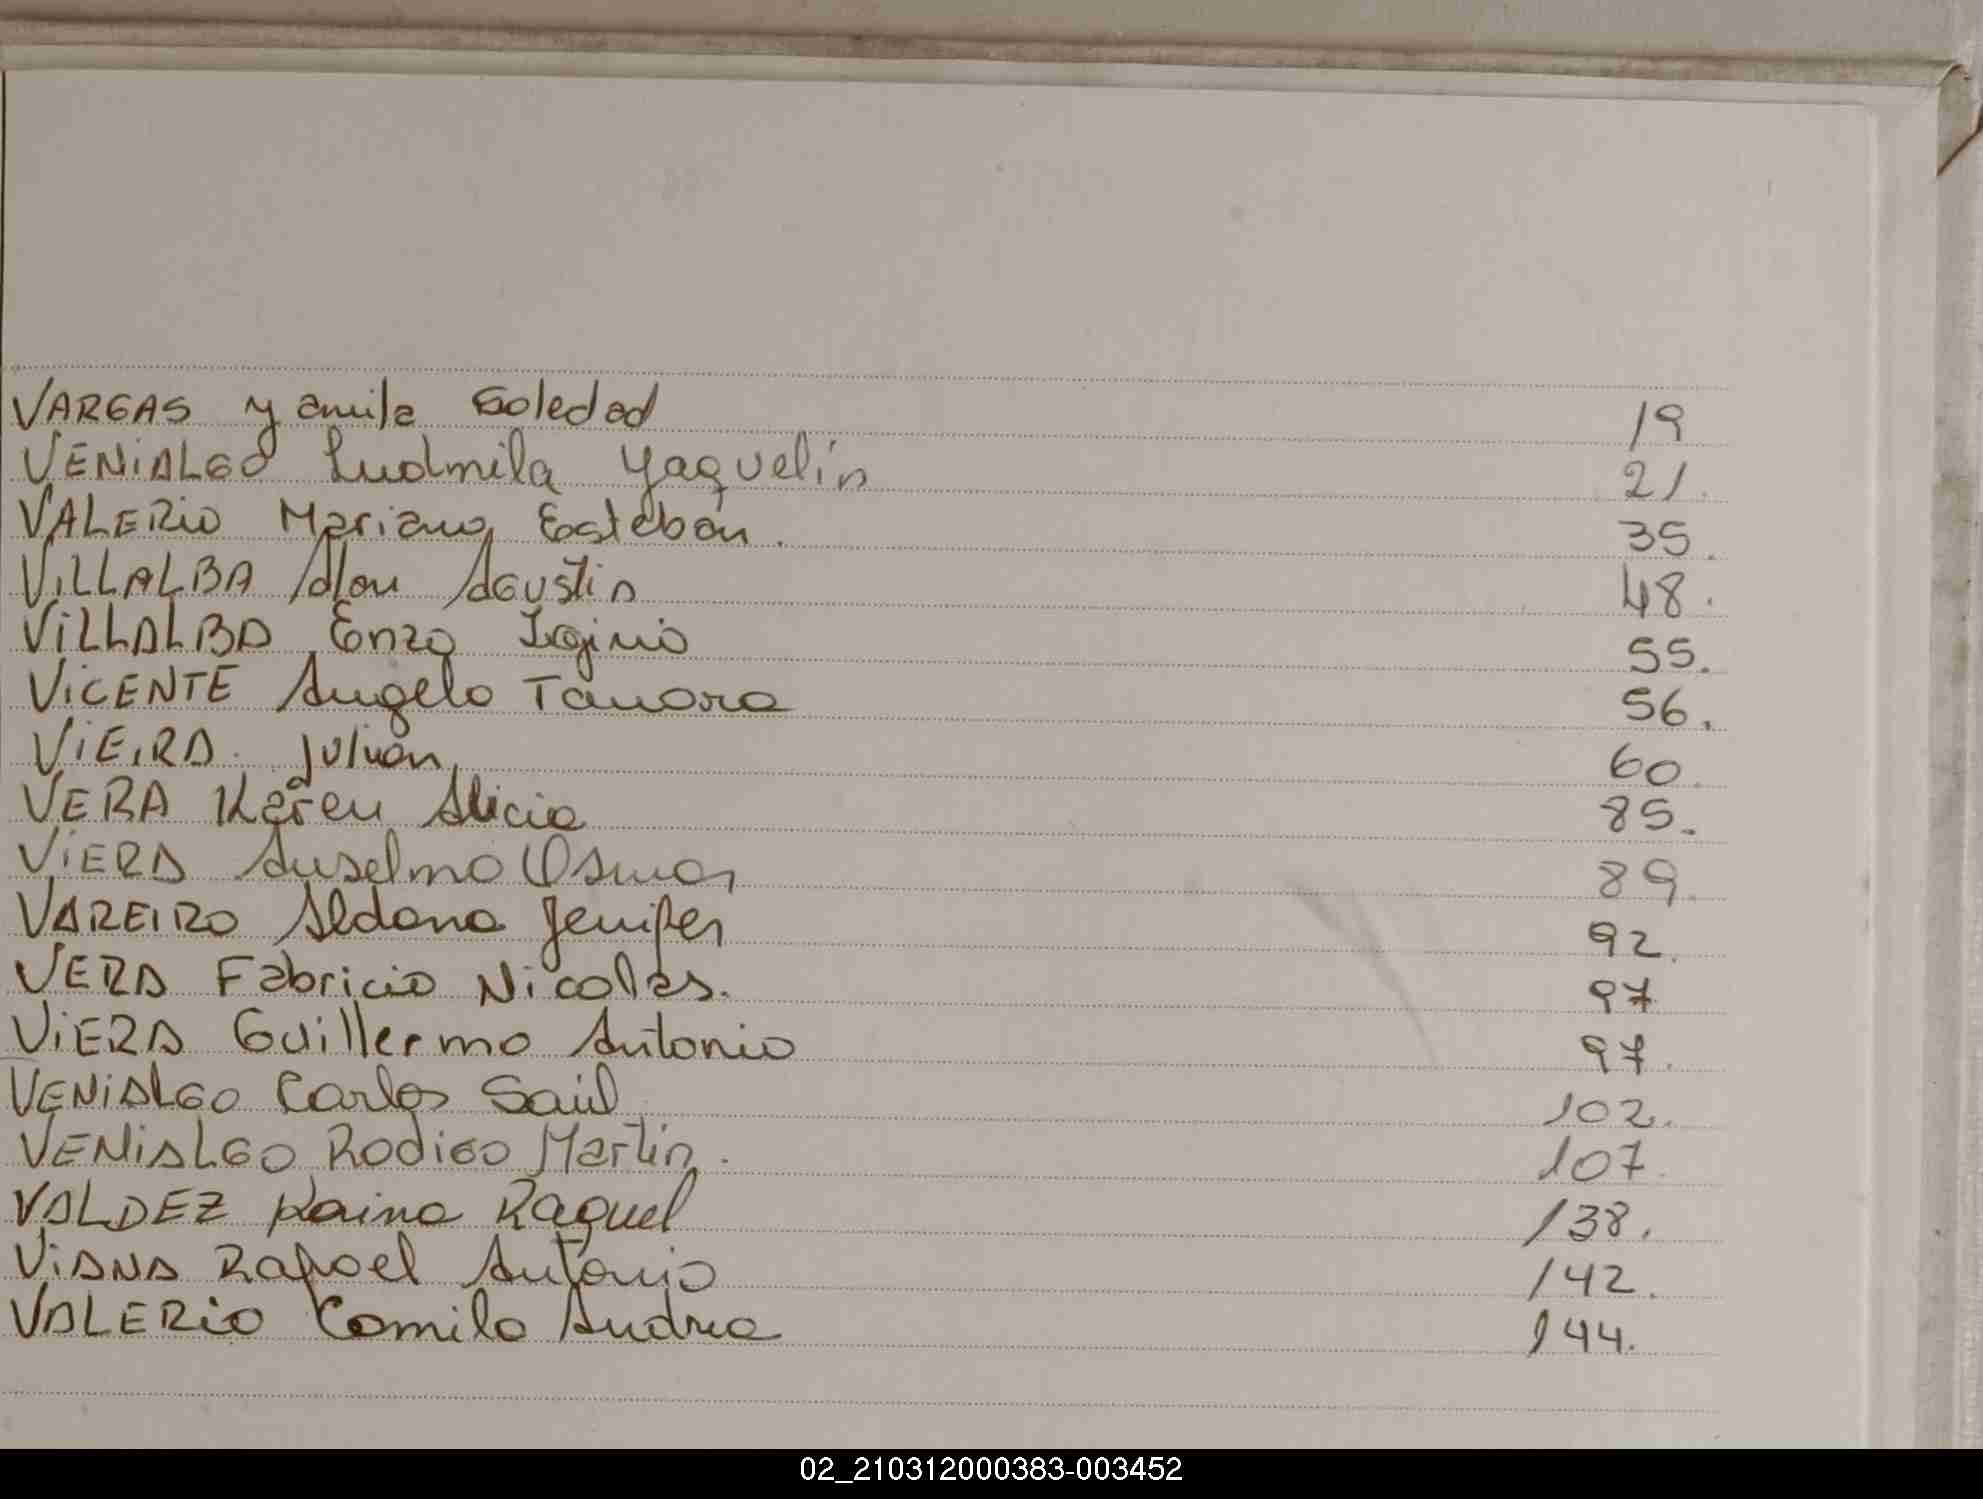 VARGAS Yamila Soledad 19
VENIALGO Ludmila Yaquelin 21.
VALERIO Mariano Esteban. 35.
VILLALBA Alan Agustin 48.
VILLALBA Enzo Iginio 55.
VICENTE Angelo Tamara 56.
VIEIRA. Julian 60.
VERA Karen Alicia 85.
VIERA Anselmo Osmar 89.
VAREIRO Aldana Jenifer 92.
VERA Fabricio Nicolas. 97
VIERA Guillermo Antonio 97.
VENIALGO Carlos Saúl 102.
VENIALGO Rodigo Martín. 107.
VALDEZ Raquel 138.
VIANA Rafael Antonio 142.
VALERIO Camila Andrea 144.
02_210312000383-003452